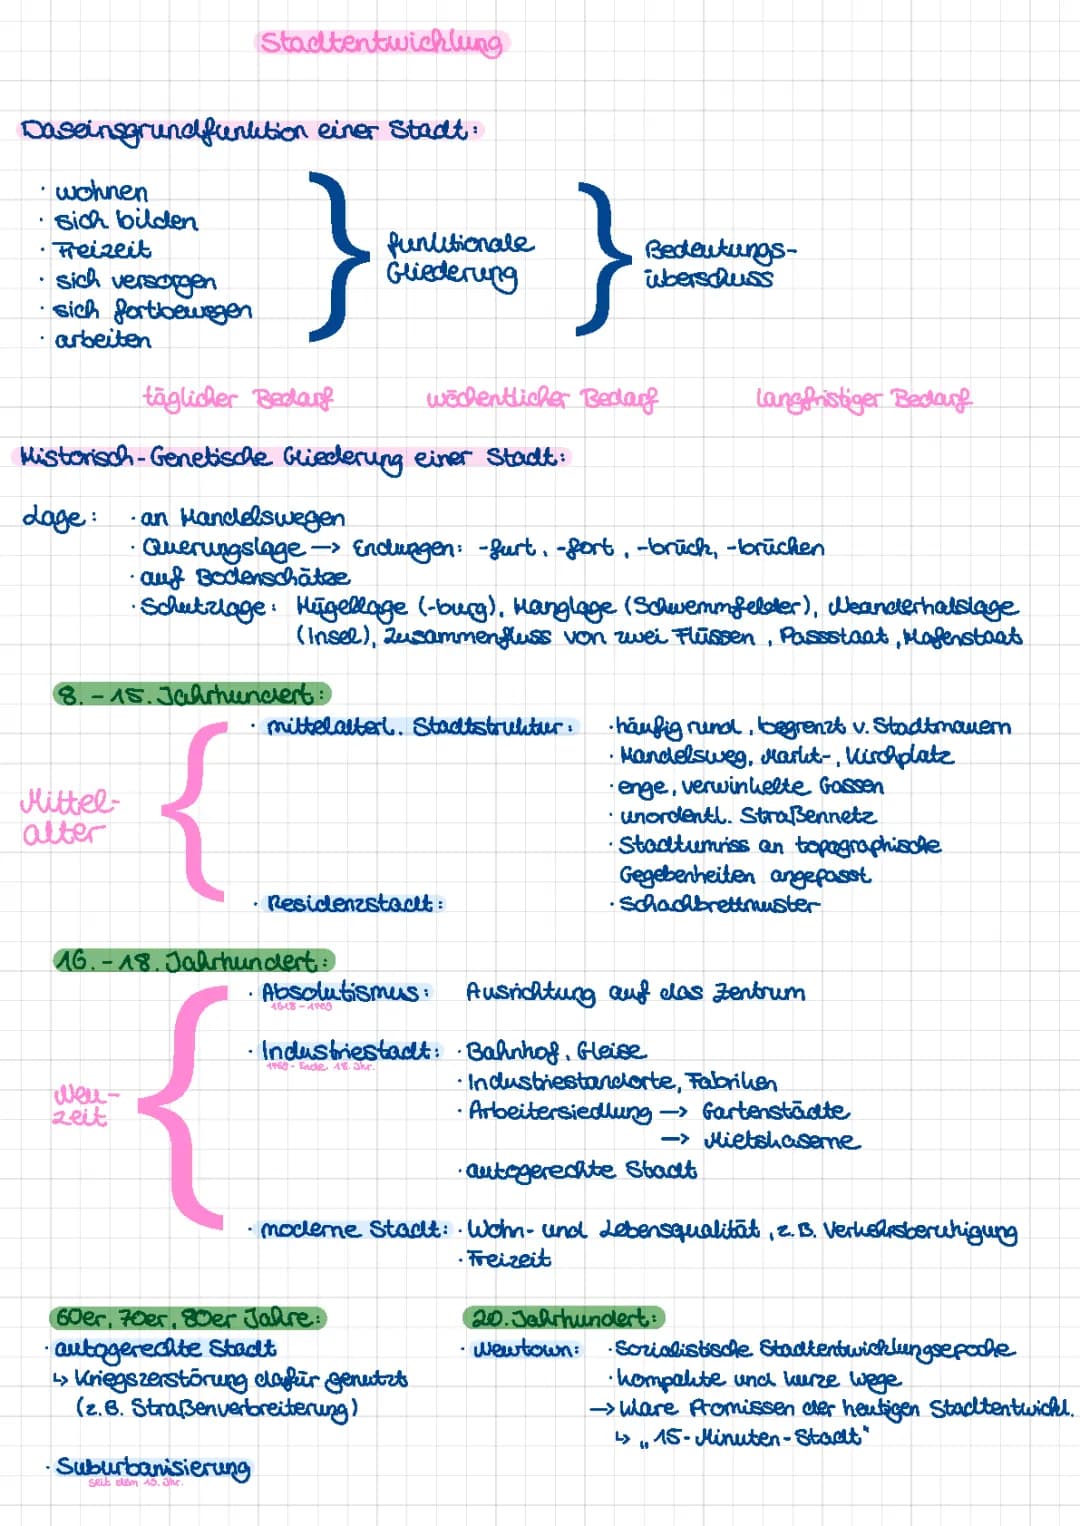 Stadtentwicklung
Daseinsgrundfunktion einer Stadt:
· wohnen
· sich bilden
· Freizeit
· sich versorgen
· sich fortbewegen
· arbeiten
funktionale
Gliederung
Bedeutungs-
überschuss
täglicher Bedarf wöchentlicher Bedarf langfristiger Bedarf
Historisch-Genetische Gliederung einer Stadt:
Lage: · an Handelswegen
· Querungslage → Endungen: -furt, -fort, -brück, -brücken
· auf Bodenschätze
· Schutzlage: Hügellage (-burg), Hanglage (Schwemmfelder), Meanderhalslage
(Insel), Zusammenfluss von zwei Flüssen, Passstaat, Hafenstaat
8. - 15. Jahrhundert:
Mittel-
alter
· mittelalterl. Stadtstruktur: · häufig rund, begrenzt v. Stadtmauern
· Handelsweg, Markt-, Kirchplatz
· enge, verwinkelte Gassen
· unordentl. Straßennetz
· Stadtumriss an topographische
Gegebenheiten angepasst
· Residenzstadt: · Schachbrettmuster
16. - 18. Jahrhundert:
Neu-
zeit
· Absolutismus: Ausrichtung auf das Zentrum
1618 - 1769
· Industriestadt: · Bahnhof, Gleise
1769 - Ende 18. Jhr.
· Industriestandorte, Fabriken
· Arbeitersiedlung → Gartenstädte
→ Mietskaserne
· autogerechte Stadt
· moderne Stadt: · Wohn- und Lebensqualität, z.B. Verkehrsberuhigung
· Freizeit
60er, 70er, 80er Jahre:
· autogerechte Stadt
↳ Kriegszerstörung dafür genutzt
(z.B. Straßenverbreiterung)
· Suburbanisierung
seit dem 19. Jhr.
20. Jahrhundert:
· Newtown: · Sozialistische Stadtentwicklungsepoche
· kompakte und kurze Wege
→ klare Promissen der heutigen Stadtentwickl.
↳ „15-Minuten-Stadt"